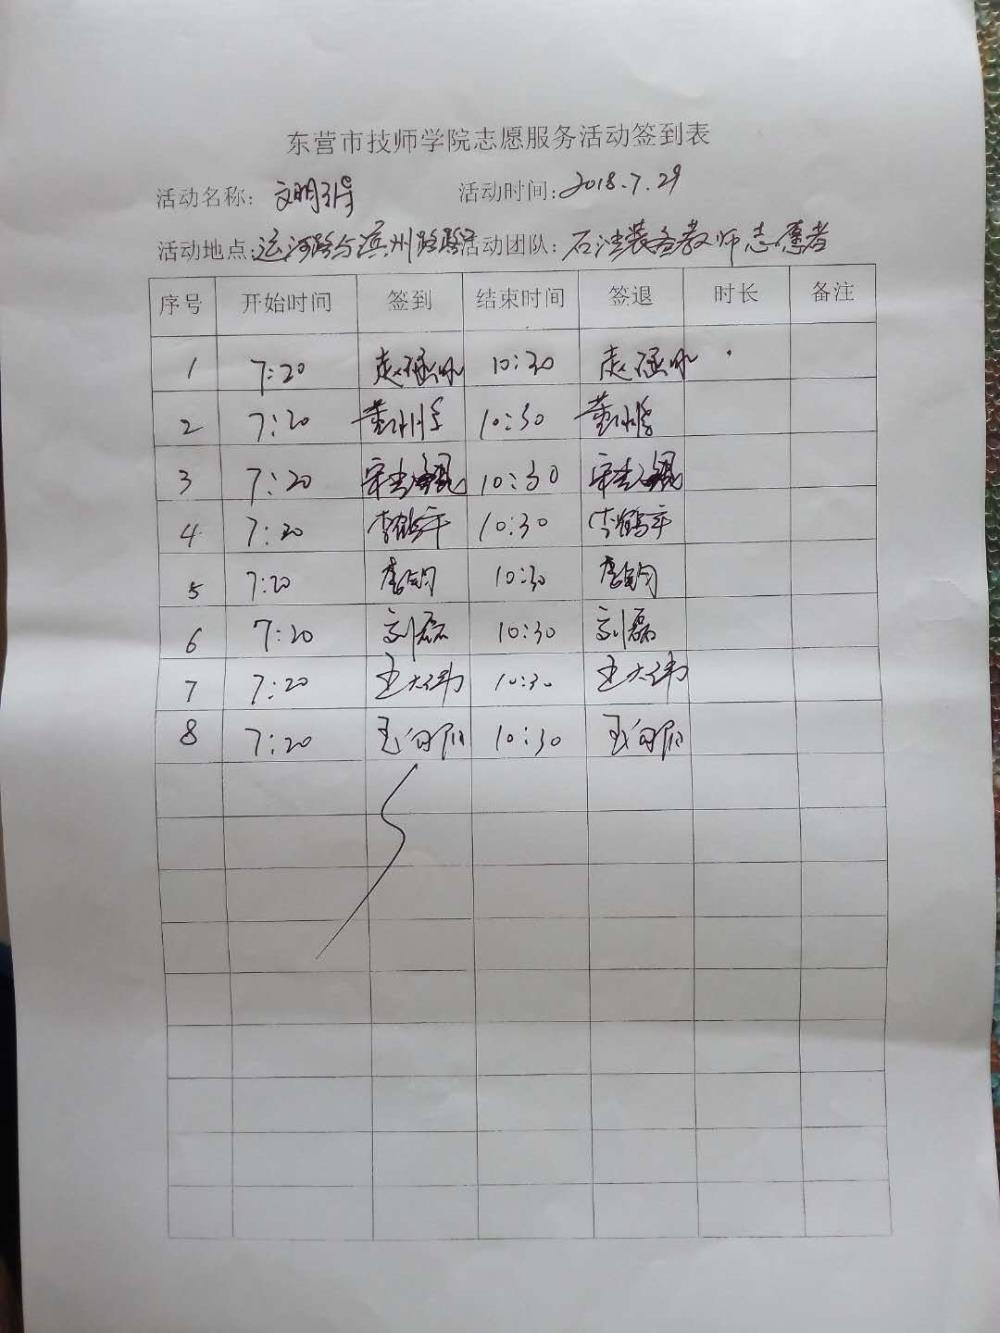 东营市技师学院志愿服务活动签到表
活动名称: 文明引导 活动时间: 2018.7.29
活动地点: 运河路与滨州路路口 活动团队: 石油装备教师志愿者
序号 开始时间 签到 结束时间 签退 时长 备注
1 7:20 10:30
2 7:20 10:30
3 7:20 10:30
4 7:20 李鹤平 10:30 李鹤平
5 7:20 李钧 10:30 李钧
6 7:20 刘磊 10:30 刘磊
7 7:20 王大伟 10:30 王大伟
8 7:20 10:30